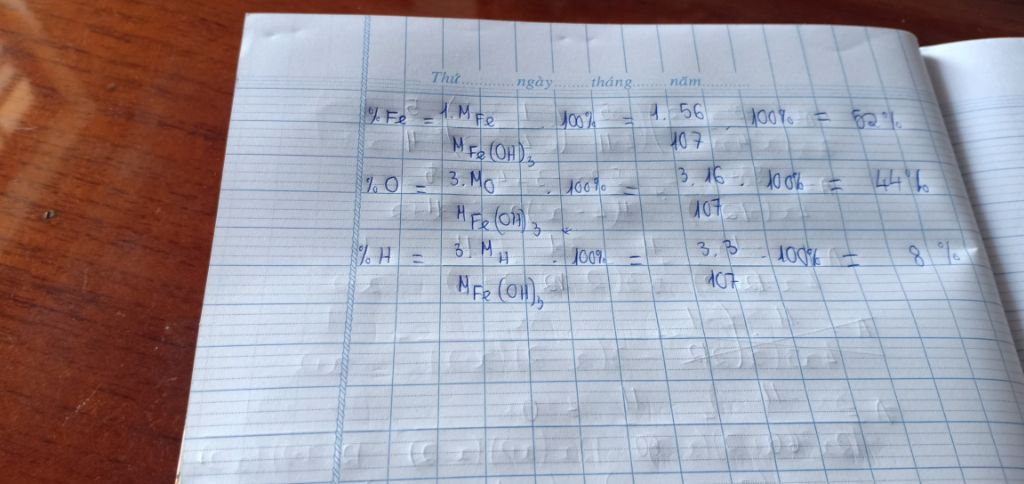 Thứ............ngày.......tháng.......năm............
%Fe = 1.M_Fe / M_Fe(OH)₃ . 100% = 1. 56 / 107 . 100% = 52%
%O = 3.M_O / M_Fe(OH)₃ . 100% = 3.16 / 107 . 100% = 44%
%H = 3.M_H / M_Fe(OH)₃ . 100% = 3.3 / 107 . 100% = 8%